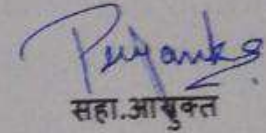 Priyanka
सहा.आयुक्त